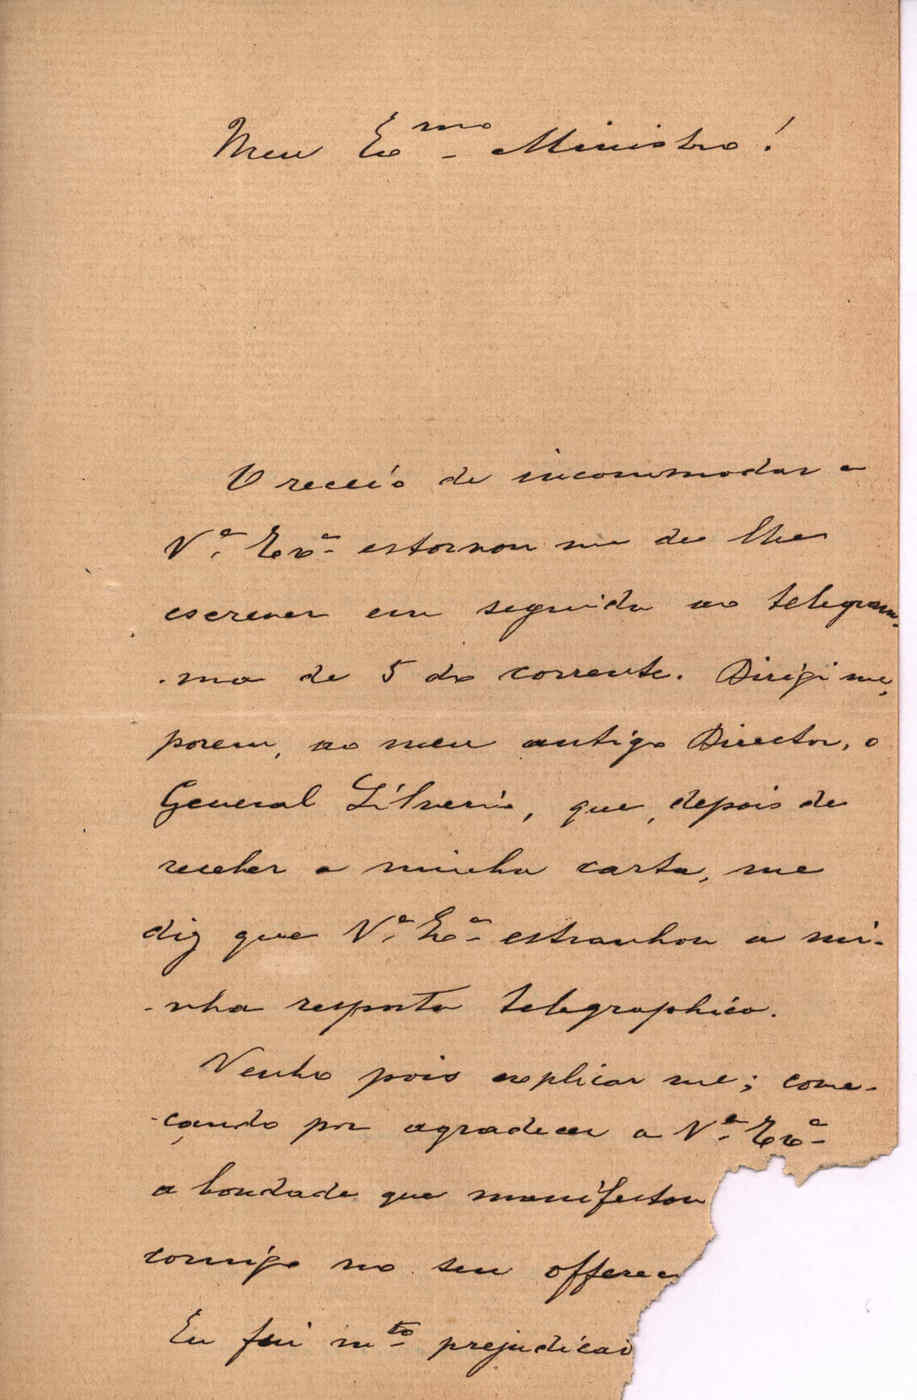 Meu Exmo Ministro!
O receio de incommodar a
Va. Exa estorvou me de lhe
escrever em seguida ao telegram-
-ma de 5 do corrente. Dirigi me,
porem, ao meu antigo Director, o
General Silverio, que, depois de
receber a minha carta, me
diz que Va. Exa estranhou a mi-
-nha resposta telegraphica.
Venho pois explicar me; come-
-çando por agradecer a Va. Exa
a bondade que manifestou
comigo no seu offerec
Eu fui mto prejudicad